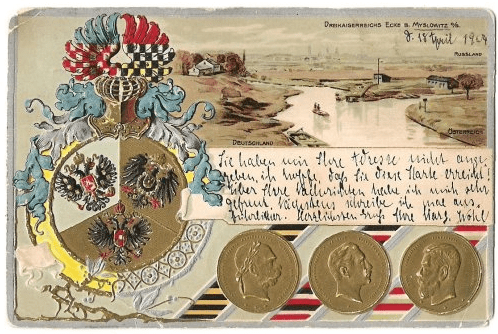 DREIKAISERREICHS ECKE B. MYSLOWITZ O/S.
d. 18 April 1904
RUSSLAND
DEUTSCHLAND
ÖSTERREICH
Sie haben mir Ihre Adresse nicht ange-
geben, ich hoffe, daß Sie diese Karte erreicht!
Über Ihre Nachrichten habe ich mich sehr
gefreut. Nächstens schreibe ich mal aus-
führlicher. Herzlichsten Gruß Ihre Marg.